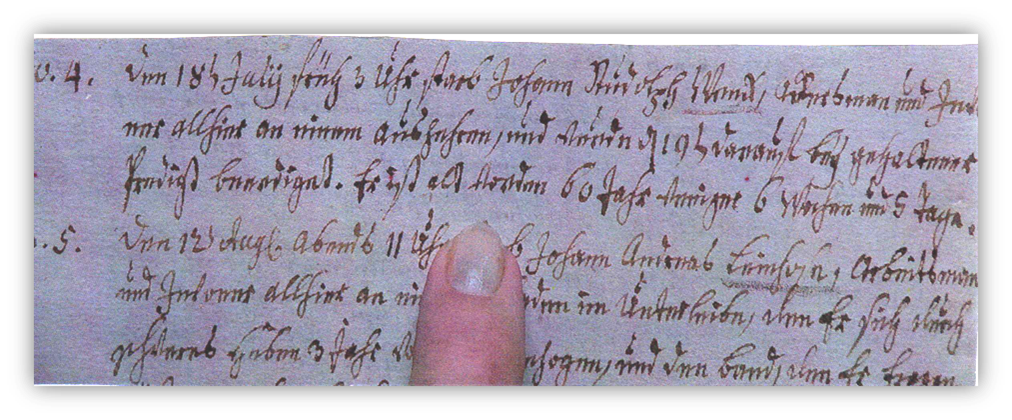 o. 4. den 18ᵗ July früh 3 Uhr starb Johann Rudolph Wend, Arbeitsman und Inwo-
ner allhier an einem auszehren, und wurde d 19ᵗ darauf bey gehaltener
Predigt beerdiget. Er ist alt worden 60 Jahr weniger 6 Wochen und 5 Tage.
o. 5. den 12ᵗ Aug. abends 11 Uhr b Johann Andreas Leimhose, Arbeitsman
und Inwoner allhier an ei den im Unterleibe, den Er sich durch
schweres Heben 3 Jahr zogen, und den band, den Er